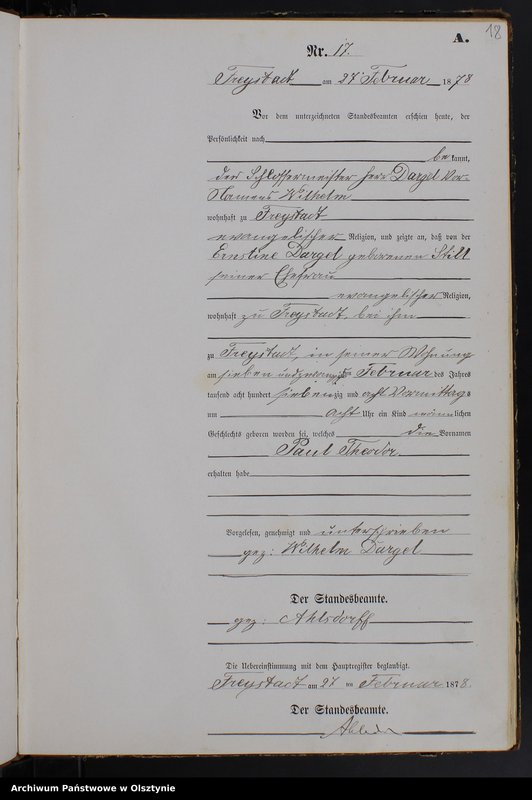 18
A.
Nr. 17.
Freystadt am 27 Februar 1878
Vor dem unterzeichneten Standesbeamten erschien heute, der
Persönlichkeit nach
be kannt,
der Schlossermeister Herr Dargel Vor-
Namens Wilhelm
wohnhaft zu Freystadt
evangelischer Religion, und zeigte an, daß von der
Ernstine Dargel geborenen Still
seiner Ehefrau
evangelischer Religion,
wohnhaft zu Freystadt, bei ihm
zu Freystadt, in seiner Wohnung
am sieben und zwanzigsten Februar des Jahres
tausend acht hundert siebenzig und acht Vormittags
um acht Uhr ein Kind männlichen
Geschlechts geboren worden sei, welches die Vornamen
Paul Theodor
erhalten habe
Vorgelesen, genehmigt und unterschrieben
gez: Wilhelm Dargel
Der Standesbeamte.
gez: Ahlsdorff
Die Uebereinstimmung mit dem Hauptregister beglaubigt.
Freystadt am 27 ten Februar 1878.
Der Standesbeamte.
Archiwum Państwowe w Olsztynie